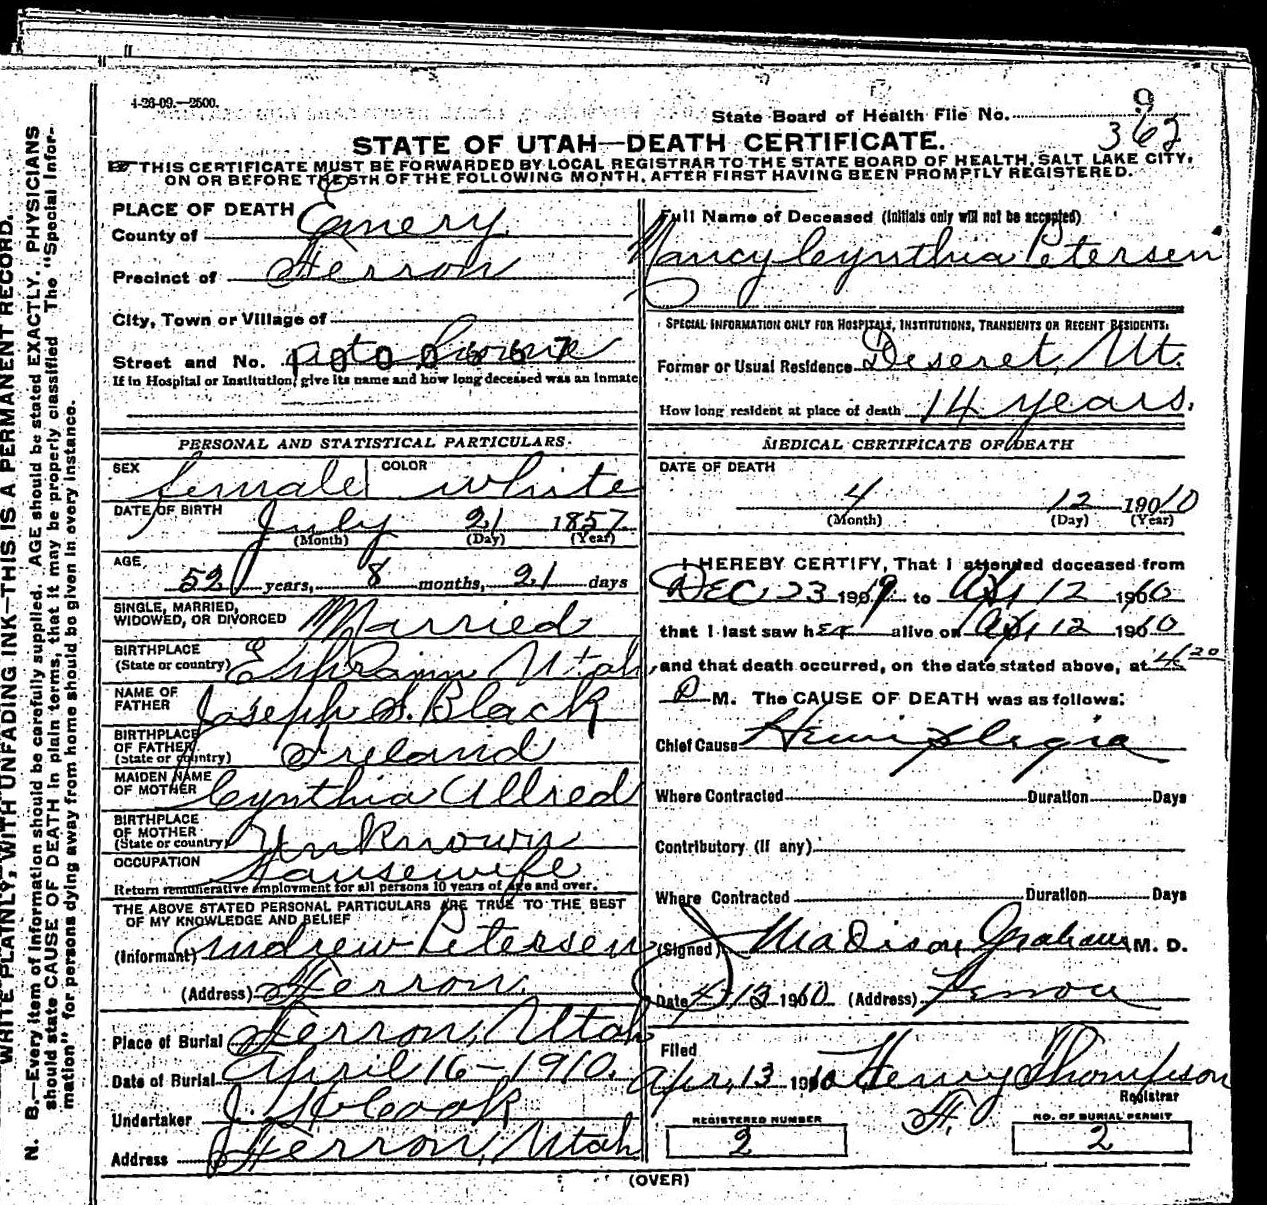 4-26-09.—2500.
State Board of Health File No. 9
362
STATE OF UTAH—DEATH CERTIFICATE.
THIS CERTIFICATE MUST BE FORWARDED BY LOCAL REGISTRAR TO THE STATE BOARD OF HEALTH, SALT LAKE CITY,
ON OR BEFORE THE 5TH OF THE FOLLOWING MONTH, AFTER FIRST HAVING BEEN PROMPTLY REGISTERED.
PLACE OF DEATH
County of Emery
Precinct of Ferron
City, Town or Village of
Street and No.
If in Hospital or Institution, give its name and how long deceased was an inmate
PERSONAL AND STATISTICAL PARTICULARS.
SEX female COLOR white
DATE OF BIRTH July 21 1857
(Month) (Day) (Year)
AGE 52 years, 8 months, 21 days
SINGLE, MARRIED,
WIDOWED, OR DIVORCED Married
BIRTHPLACE
(State or country) Ephraim Utah
NAME OF
FATHER Joseph S. Black
BIRTHPLACE
OF FATHER
(State or country) Ireland
MAIDEN NAME
OF MOTHER Cynthia Allred
BIRTHPLACE
OF MOTHER
(State or country) Unknown
OCCUPATION Housewife
Return remunerative employment for all persons 10 years of age and over.
THE ABOVE STATED PERSONAL PARTICULARS ARE TRUE TO THE BEST
OF MY KNOWLEDGE AND BELIEF
(Informant) Andrew Petersen
(Address) Ferron.
Place of Burial Ferron, Utah
Date of Burial April 16-1910.
Undertaker J. H. Cook
Address Ferron, Utah
Full Name of Deceased (Initials only will not be accepted)
Nancy Cynthia Petersen
SPECIAL INFORMATION ONLY FOR HOSPITALS, INSTITUTIONS, TRANSIENTS OR RECENT RESIDENTS.
Former or Usual Residence Deseret, Ut.
How long resident at place of death 14 years.
MEDICAL CERTIFICATE OF DEATH
DATE OF DEATH
4 12 1910
(Month) (Day) (Year)
I HEREBY CERTIFY, That I attended deceased from
DEC 23 1909 to Apr 12 1910
that I last saw her alive on Apr 12 1910
, and that death occurred, on the date stated above, at 4 20
P M. The CAUSE OF DEATH was as follows:
Chief Cause Hemiplegia
Where Contracted Duration Days
Contributory (if any)
Where Contracted Duration Days
(Signed) J Madison Graham M. D.
Date 4/13 1910 (Address) Ferron
Filed
Apr. 13 1910 Henry Thompson
Registrar
REGISTERED NUMBER
2
NO. OF BURIAL PERMIT
2
(OVER)
WRITE PLAINLY, WITH UNFADING INK—THIS IS A PERMANENT RECORD.
N. B.—Every item of information should be carefully supplied. AGE should be stated EXACTLY. PHYSICIANS
should state CAUSE OF DEATH in plain terms, that it may be properly classified The "Special Infor-
mation" for persons dying away from home should be given in every instance.